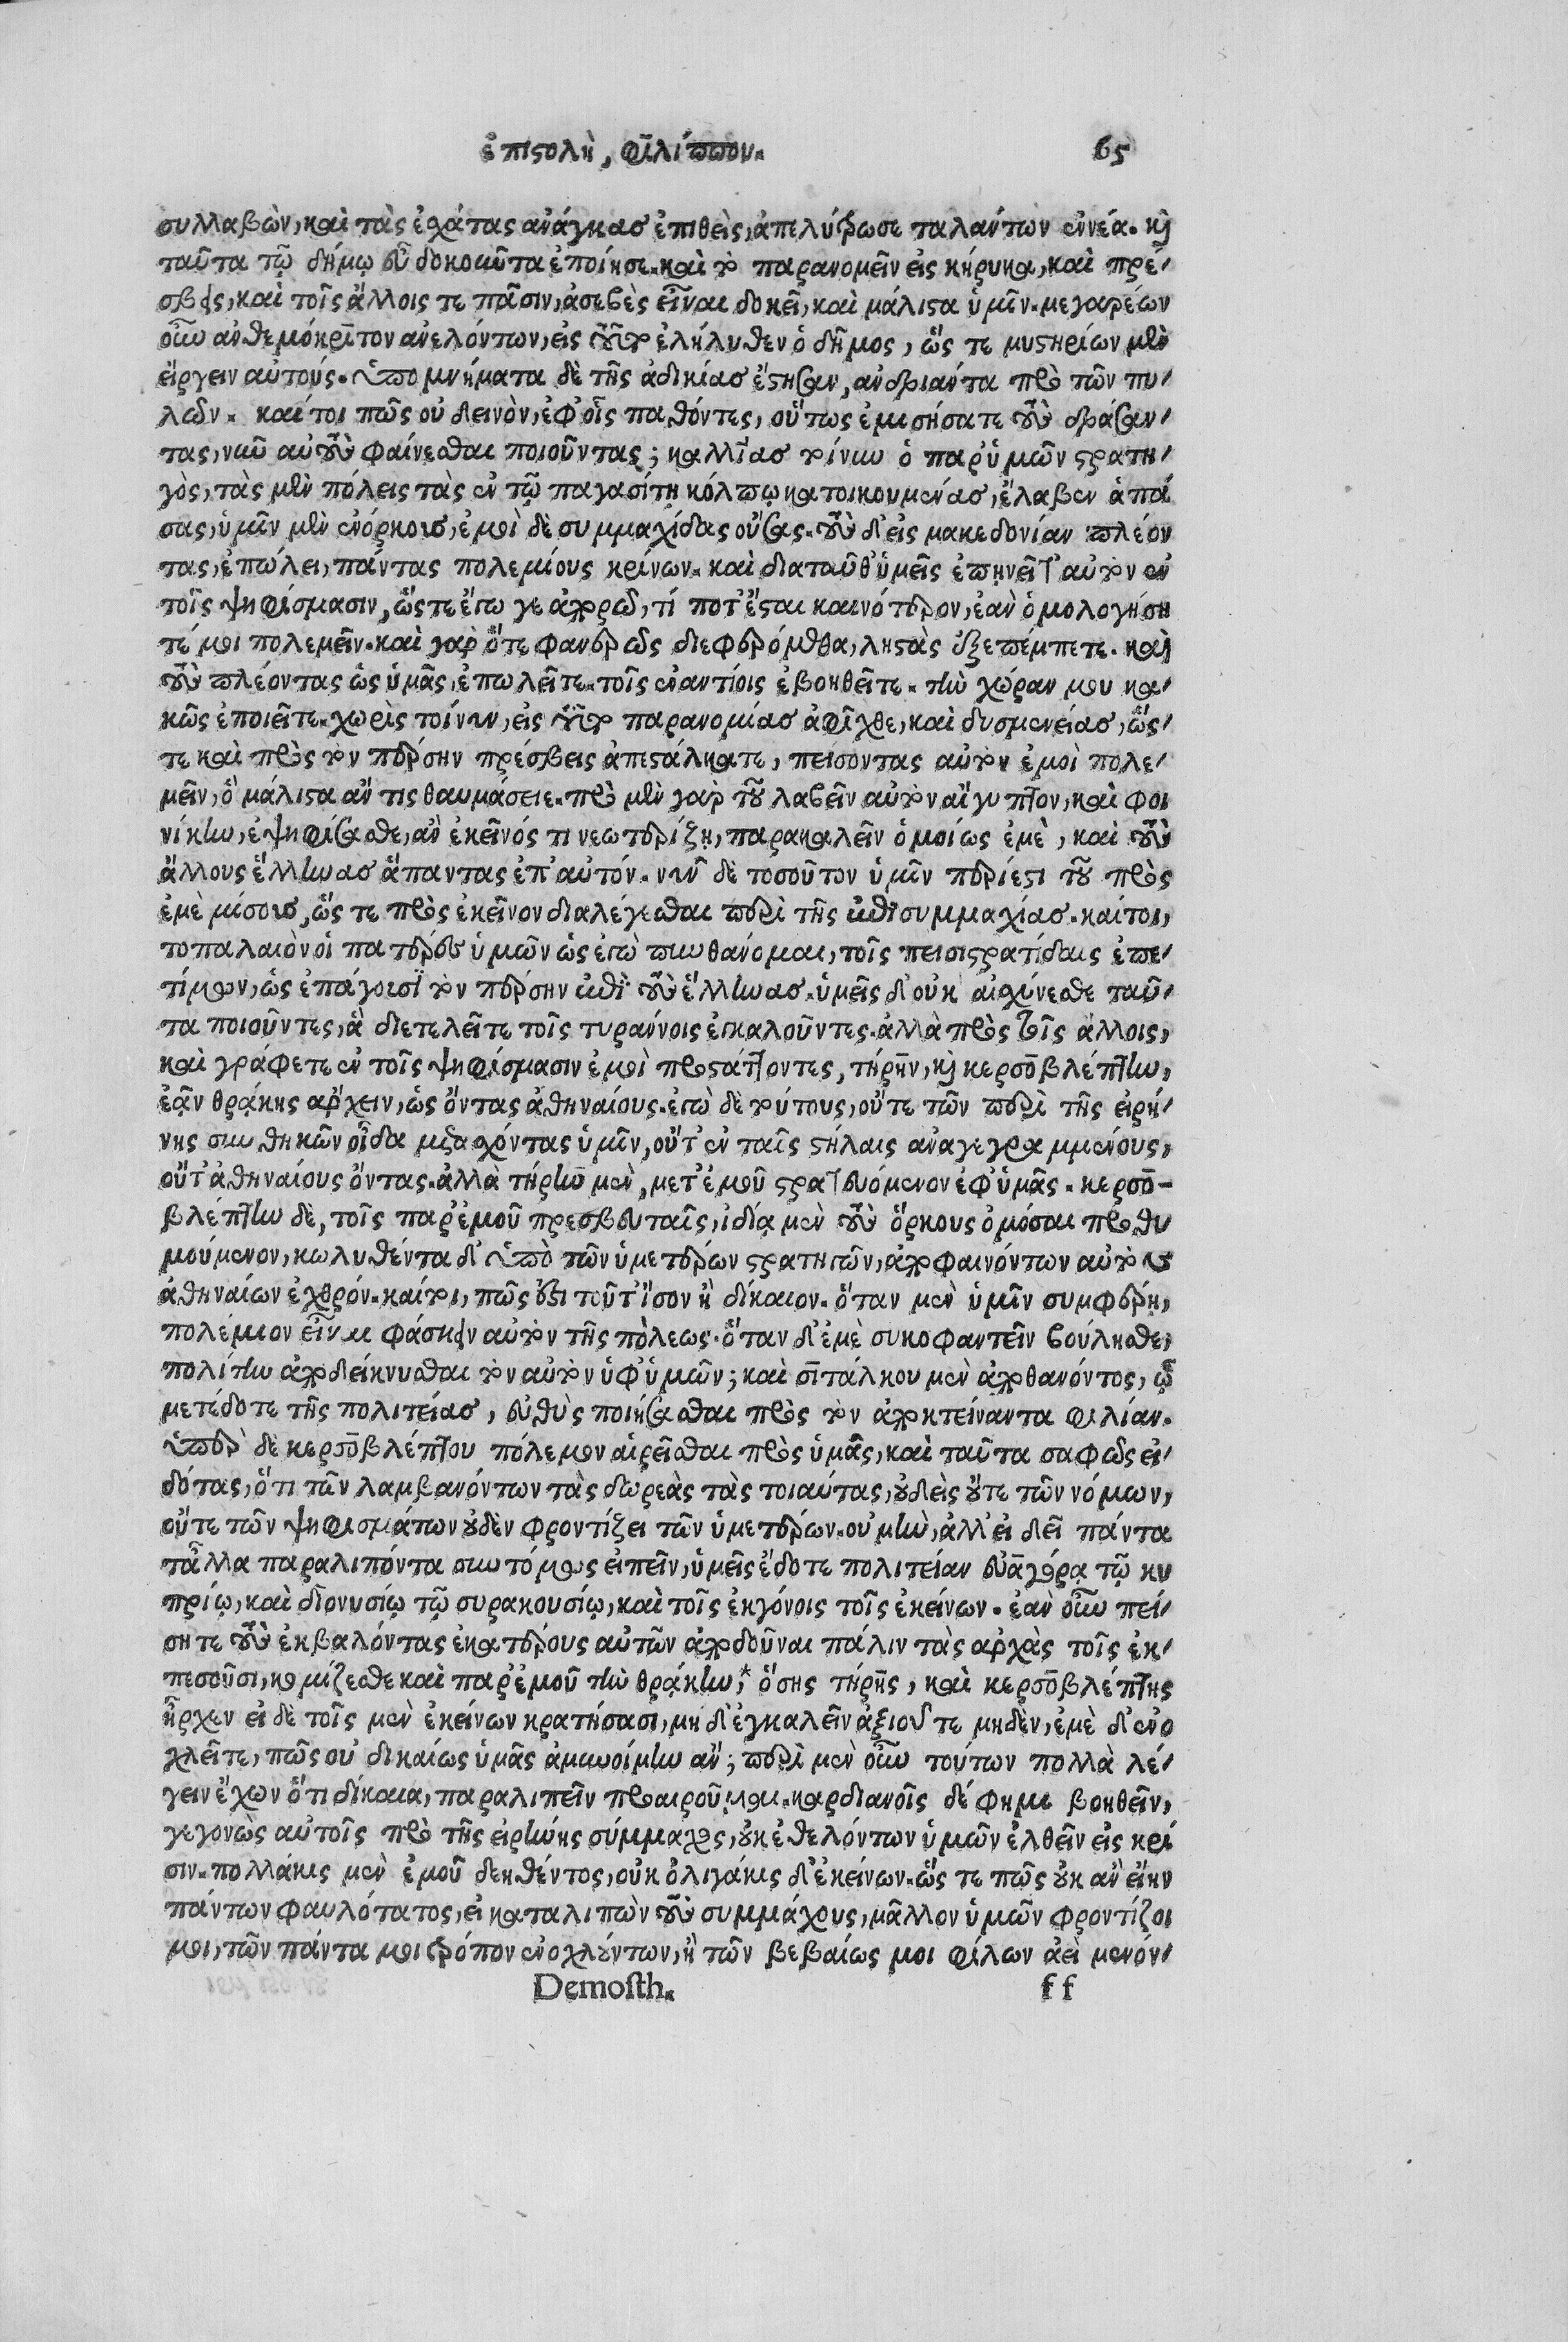 ἐπιστολὴ, φιλίππου. 65
συλλαβὼν, καὶ τὰς ἐχάτας ἀνάγκας ἐπιθεὶς, ἀπελύτρωσε ταλάντων ἐννέα. καὶ
ταῦτα τῷ δήμῳ συνδοκοῦντα ἐποίησε. καὶ τὸ παρανομεῖν εἰς κήρυκα, καὶ πρέ-
σβεις, καὶ τοῖς ἄλλοις τε πᾶσιν, ἀσεβὲς εἶναι δοκεῖ, καὶ μάλιστα ὑμῖν. μεγαρέων
οὖν ἀνθεμόκριτον ἀνελόντων, εἰς τοῦτο ἐλήλυθεν ὁ δῆμος, ὥς τε μυστηρίων μὲν
εἴργειν αὐτους. ὑπομνήματα δὲ τῆς ἀδικίας ἔστησαν, ἀνδριάντα πρὸ τῶν πυ-
λῶν. καίτοι πῶς οὐ δεινὸν, ἐφ' οἷς παθόντες, οὕτως ἐμισήσατε τοὺς δράσαν-
τας, νῦν αὐτοὺς φαίνεσθαι ποιοῦντας; καλλίας τοίνυν ὁ παρ' ὑμῶν στρατη-
γὸς, τὰς μὲν πόλεις τὰς ἐν τῷ παγασίτῃ κόλπῳ κατοικουμένας, ἔλαβεν ἁπά
σας, ὑμῖν μὲν ἐνόρκους, ἐμοὶ δὲ συμμαχίδας οὔσας. τοὺς δ' εἰς μακεδονίαν πλέον
τας, ἐπώλει, πάντας πολεμίους κρίνων. καὶ διαταῦθ' ὑμεῖς ἐπῃνεῖτ' αὐτὸν ἐν
τοῖς ψηφίσμασιν, ὥςτε ἔγωγε ἀπορῶ, τί ποτ' ἔσται καινότερον, ἐὰν ὁμολογήση
τέ μοι πολεμεῖν. καὶ γαρ ὅτε φανερῶς διεφερόμεθα, ληστὰς ἐξεπέμπετε. καὶ
τοὺς πλέοντας ὡς ὑμᾶς, ἐπωλεῖτε. τοῖς ἐναντίοις ἐβοηθεῖτε. τὴν χώραν μου κα-
κῶς ἐποιεῖτε. χωρὶς τοίνυν, εἰς τοῦτο παρανομίας ἀφῖχθε, καὶ δυσμενείας, ὥς-
τε καὶ πρὸς τὸν πέρσην πρέσβεις ἀπεστάλκατε, πείσοντας αὐτὸν ἐμοὶ πολε-
μεῖν, ὃ μάλιστα ἄν τις θαυμάσειε. πρὸ μὲν γὰρ τοῦ λαβεῖν αὐτὸν αἴγυπτον, καὶ φοι
νίκην, ἐψηφίσασθε, ἂν ἐκεῖνός τι νεωτερίζῃ, παρακαλεῖν ὁμοίως ἐμὲ, καὶ τοὺς
ἄλλους ἕλληνας ἅπαντας ἐπ' αὐτόν. νῦν δὲ τοσοῦτον ὑμῖν περίεστι τοῦ πρὸς
ἐμὲ μίσους, ὥς τε πρὸς ἐκεῖνον διαλέγεσθαι περὶ τῆς ἐπισυμμαχίας. καίτοι,
τοπαλαιὸν οἱ πατέρες ὑμῶν ὡς ἐγὼ πυνθάνομαι, τοῖς πεισιστρατίδαις ἐπε-
τίμων, ὡς ἐπάγουσι τὸν πέρσην ἐπὶ τοὺς ἕλληνας. ὑμεῖς δ' οὐκ αἰσχύνεσθε ταῦ-
τα ποιοῦντες, ἃ διετελεῖτε τοῖς τυράννοις ἐγκαλοῦντες. ἀλλὰ πρὸς τοῖς ἄλλοις,
καὶ γράφετε ἐν τοῖς ψηφίσμασιν ἐμοὶ προστάττοντες, τήρην, καὶ κερσοβλέπτην,
ἐᾶν θράκης ἄρχειν, ὡς ὄντας ἀθηναίους. ἐγὼ δὲ τούτους, οὔτε τῶν περὶ τῆς εἰρή-
νης συνθηκῶν οἶδα μετασχόντας ὑμῖν, οὔτ' ἐν ταῖς στήλαις ἀναγεγραμμένους,
οὔτ' ἀθηναίους ὄντας. ἀλλὰ τήρην μὲν, μετ' ἐμοῦ στρατευόμενον ἐφ' ὑμᾶς. κερσο-
βλέπτην δὲ, τοῖς παρ' ἐμοῦ πρεσβευταῖς, ἰδίᾳ μὲν τοὺς ὅρκους ὀμόσαι προθυ
μούμενον, κωλυθέντα δ' ὑπὸ τῶν ὑμετέρων στρατηγῶν, ἀποφαινόντων αὐτὸν
ἀθηναίων ἐχθρόν. καίτοι, πῶς ἐστι τοῦτ' ἴσον ἢ δίκαιον. ὅταν μὲν ὑμῖν συμφέρῃ,
πολέμιον εἶναι φάσκειν αὐτὸν τῆς πόλεως. ὅταν δ' ἐμὲ συκοφαντεῖν βούλησθε,
πολίτην ἀποδείκνυσθαι τὸν αὐτὸν ὑφ' ὑμῶν; καὶ σιτάλκου μὲν ἀποθανόντος, ᾧ
μετέδοτε τῆς πολιτείας, εὐθὺς ποιήσασθαι πρὸς τὸν ἀποκτείναντα φιλίαν.
ὑπὲρ δὲ κερσοβλέπτου πόλεμον αἱρεῖσθαι πρὸς ὑμᾶς, καὶ ταῦτα σαφῶς εἰ-
δότας, ὅτι τῶν λαμβανόντων τὰς δωρεὰς τὰς τοιαύτας, οὐδεὶς οὔτε τῶν νόμων,
οὔτε τῶν ψηφισμάτων οὐδὲν φροντίζει τῶν ὑμετέρων. οὐ μὴν, ἀλλ' εἰ δεῖ πάντα
τἆλλα παραλιπόντα συντόμως εἰπεῖν, ὑμεῖς ἔδοτε πολιτείαν εὐαγόρᾳ τῷ κυ
πρίῳ, καὶ διονυσίῳ τῷ συρακουσίῳ, καὶ τοῖς ἐκγόνοις τοῖς ἐκείνων. ἐὰν οὖν πεί-
σητε τοὺς ἐκβαλόντας ἑκατέρους αὐτῶν ἀποδοῦναι πάλιν τὰς ἀρχὰς τοῖς ἐκ-
πεσοῦσι, κομίζεσθε καὶ παρ' ἐμοῦ τὴν θρᾴκην,* ὅσης τήρης, καὶ κερσοβλέπτης
ἦρχεν εἰ δὲ τοῖς μὲν ἐκείνων κρατήσασι, μηδ' ἐγκαλεῖν ἀξιοῦτε μηδὲν, ἐμὲ δ' ἐνο
χλεῖτε, πῶς οὐ δικαίως ὑμᾶς ἀμυνοίμην ἄν; περὶ μὲν οὖν τούτων πολλὰ λέ-
γειν ἔχων ὅτι δίκαια, παραλιπεῖν προαιροῦμαι. καρδιανοῖς δέ φημι βοηθεῖν,
γεγονὼς αὐτοῖς πρὸ τῆς εἰρήνης σύμμαχος, οὐκ ἐθελόντων ὑμῶν ἐλθεῖν εἰς κρί
σιν. πολλάκις μὲν ἐμοῦ δεηθέντος, οὐκ ὀλιγάκις δ' ἐκείνων. ὥς τε πῶς οὐκ ἂν εἴην
πάντων φαυλότατος, εἰ καταλιπὼν τοὺς συμμάχους, μᾶλλον ὑμῶν φροντίζοι
μι, τῶν πάντα μοι τρόπον ἐνοχλούντων, ἢ τῶν βεβαίως μοι φίλων ἀεὶ μενόν-
Demosth. ff